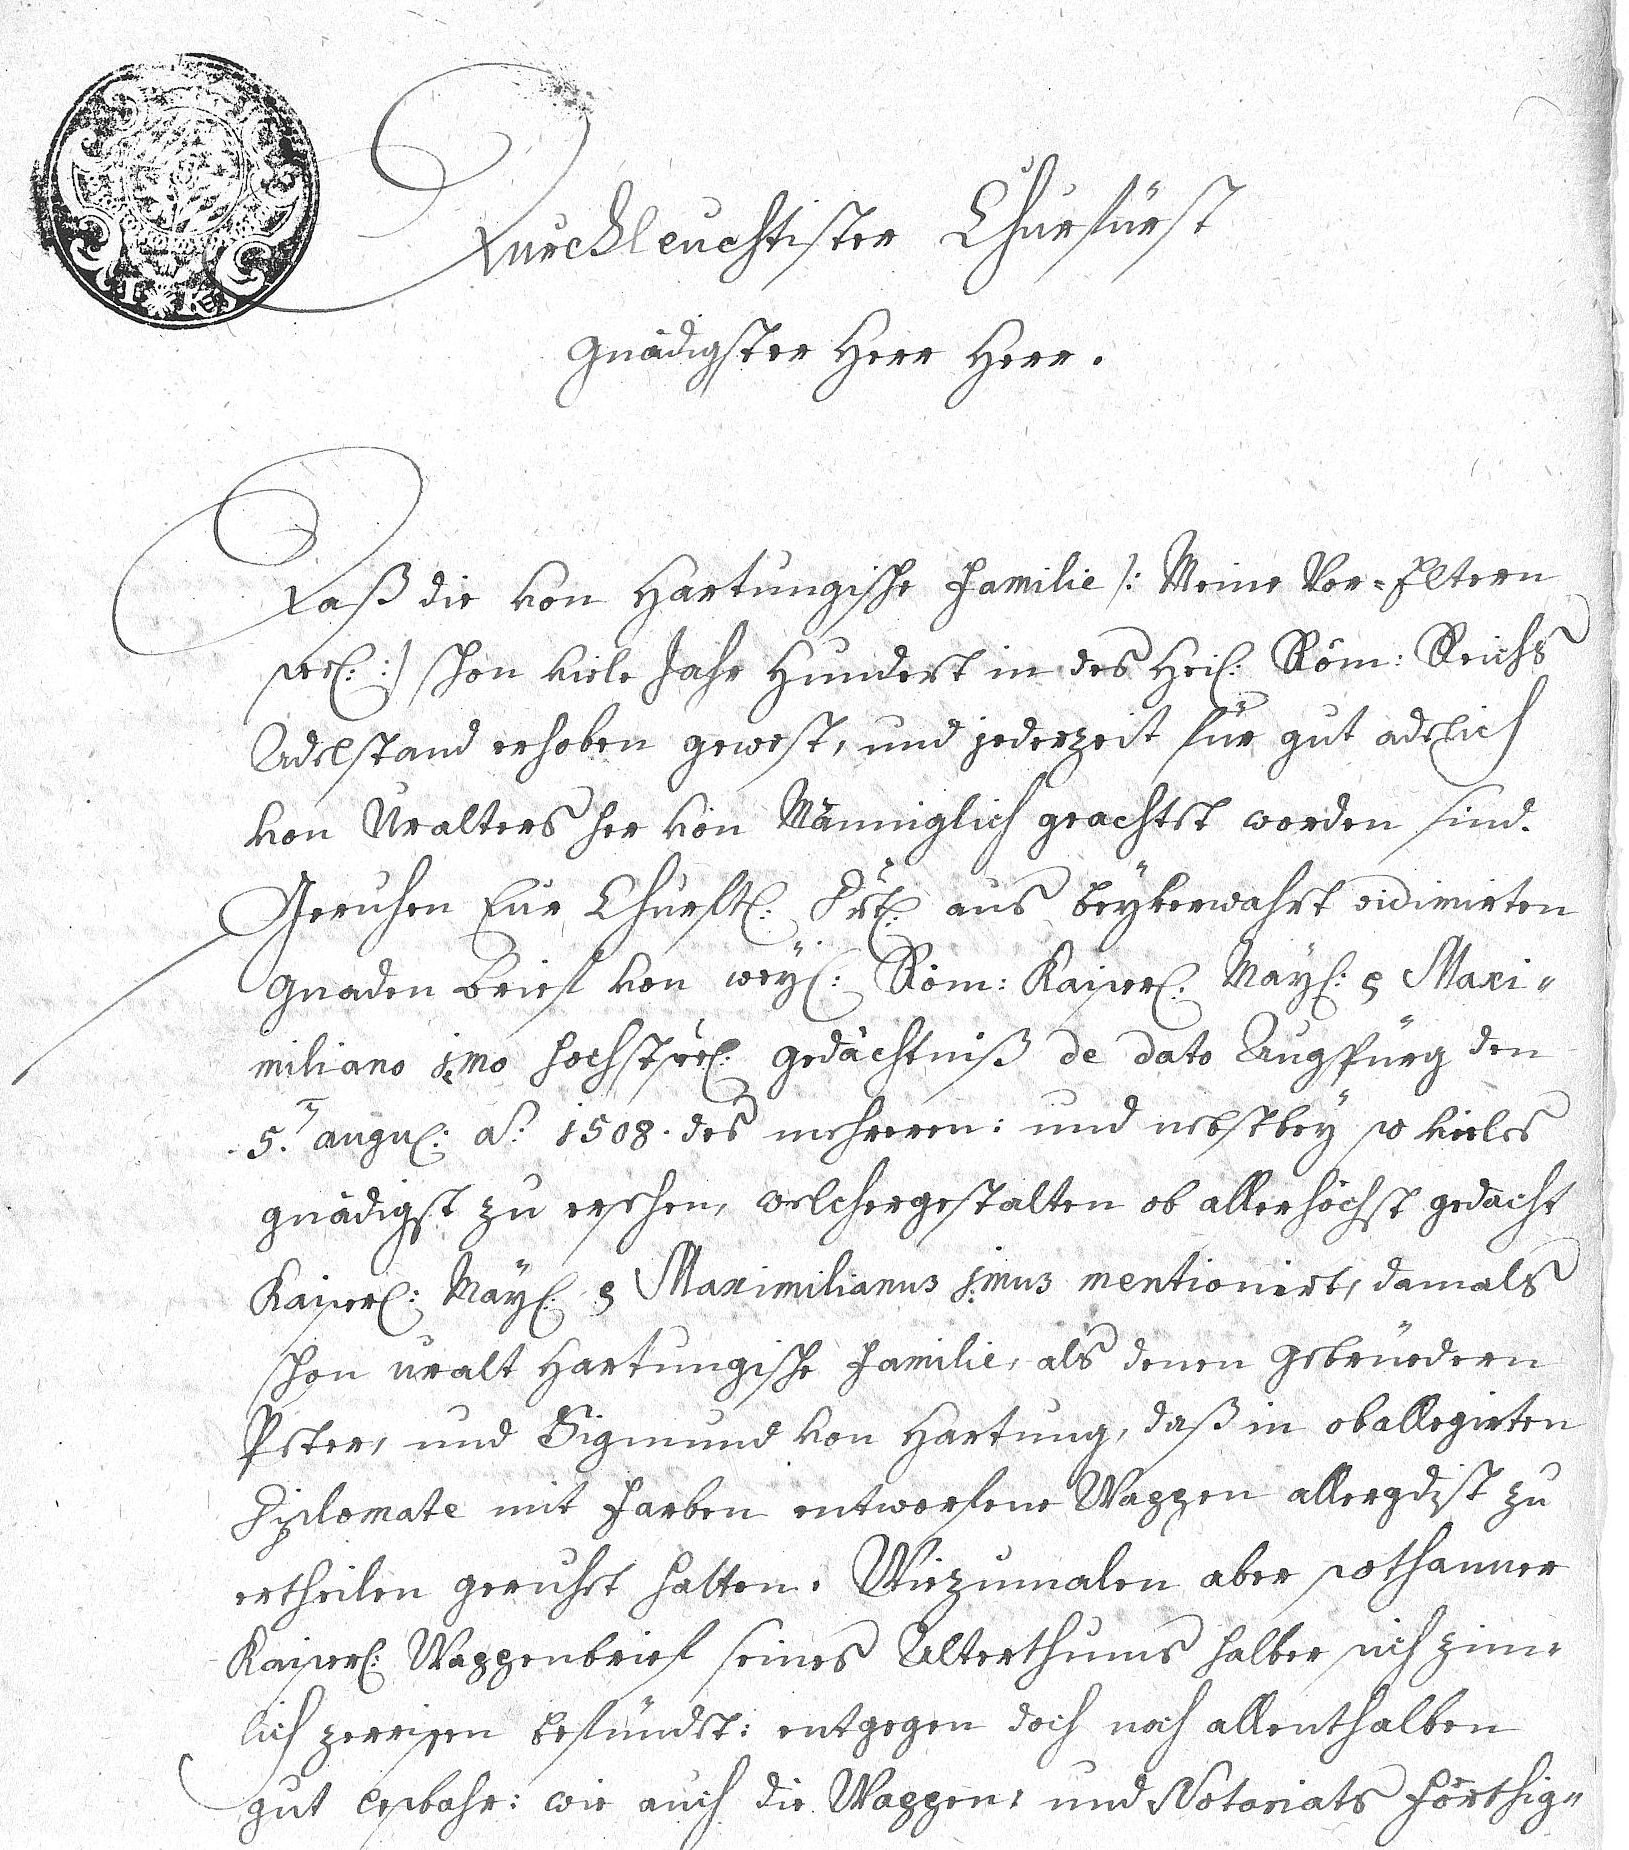 Durchleuchtister Churfürst
gnädigster Herr Herr.
Daß die von Hartungische Familie /: Meine Vor-Eltern
seel: :/ schon viele Jahr Hundert in des Heil: Röm: Reichs
Adelstand erhoben gewest, und jederzeit für gut adelich
von Uralters her von Männiglich geachtet worden sind.
Geruhen Eur Churftl: Drt: aus beyverwahrt vidimirten
Gnaden Brief von weyl: Röm: Kayserl: Mayl: Maxi-
miliano jmo höchstseel: gedächtniß de dato Augspurg den
5.t augu: ao: 1508. des mehreren: und nebstbey so vieles
gnädigst zu ersehen, welchergestalten ob allerhöchst gedacht
Kayserl: Mayl: Maximilianus jmus mentionirt, damals
schon uralt Hartungische Familie, als denen Gebrüedern
Peter, und Sigmund von Hartung, daß in oballegirten
Diplomate mit Farben entworfene Wappen allergdist zu
ertheilen geruhet hatten. Wiezumalen aber sothanner
Kayserl: Wappenbrief seines Alterthums halber sich zim-
lich zerrissen befündet: entgegen doch noch allenthalben
gut lesbahr: wie auch die Wappen: und Notariats Förthig-